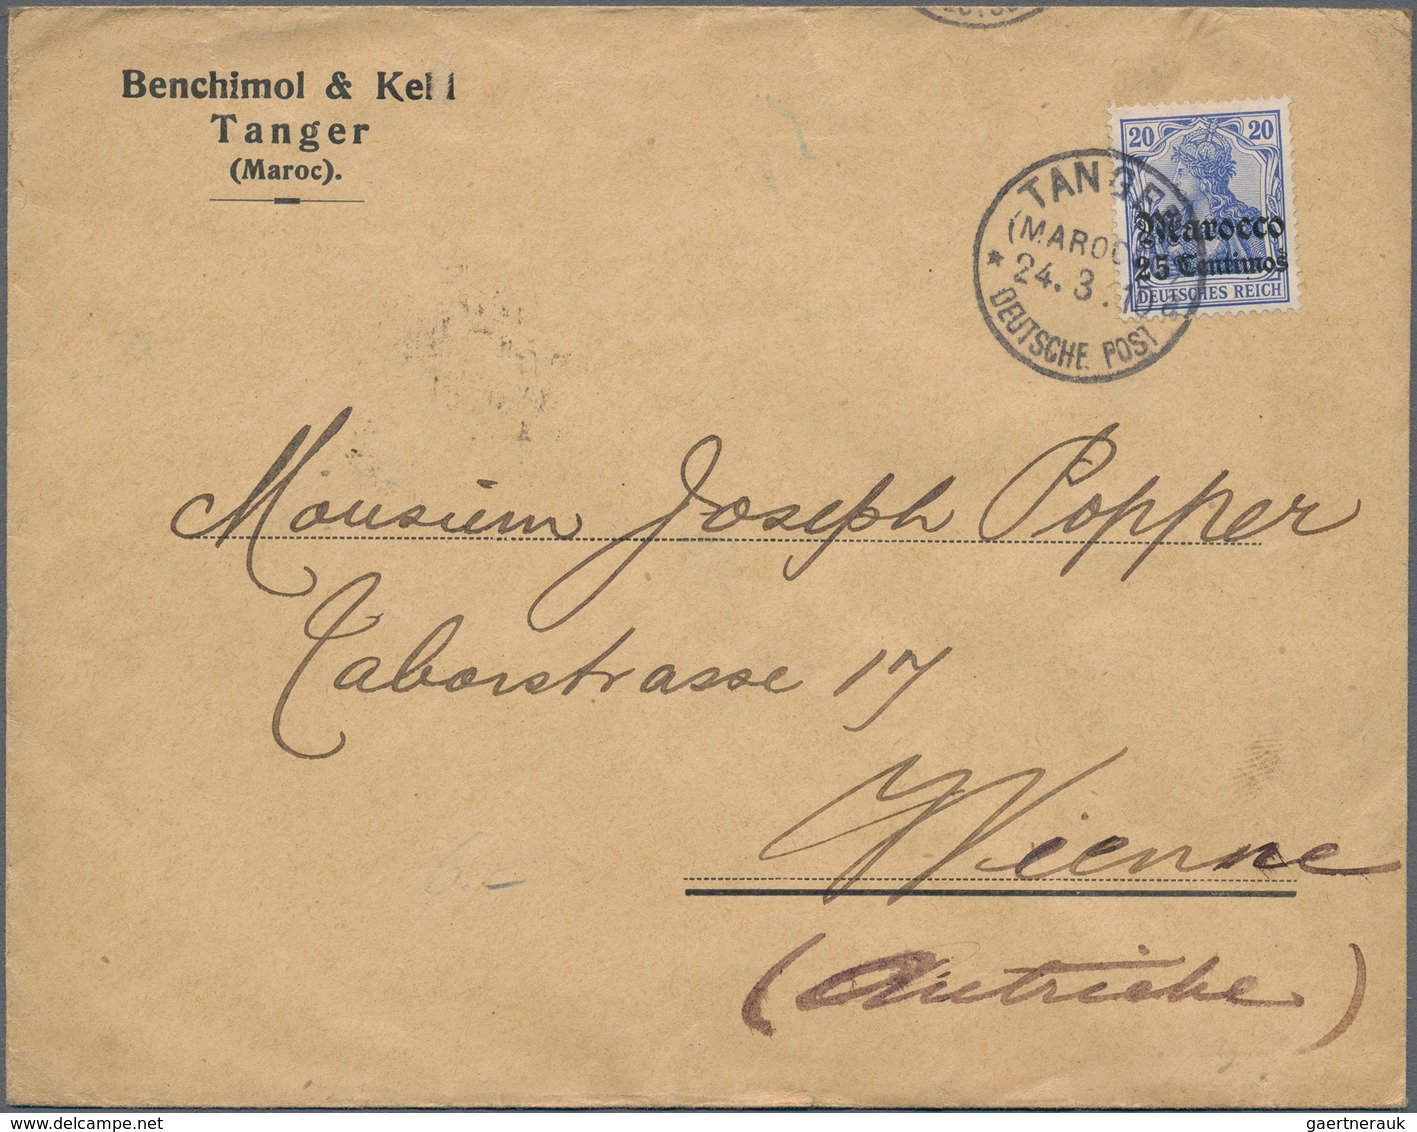 Benchimol & Kell
Tanger
(Maroc).
20 20
Marocco
25 Centimos
DEUTSCHES REICH
TANGER
(MAROC
24. 3. 1
DEUTSCHE POST
Monsieur Joseph Popper
Taborstrasse 17
Vienne
(Autriche)
6.-
gaertnerauk